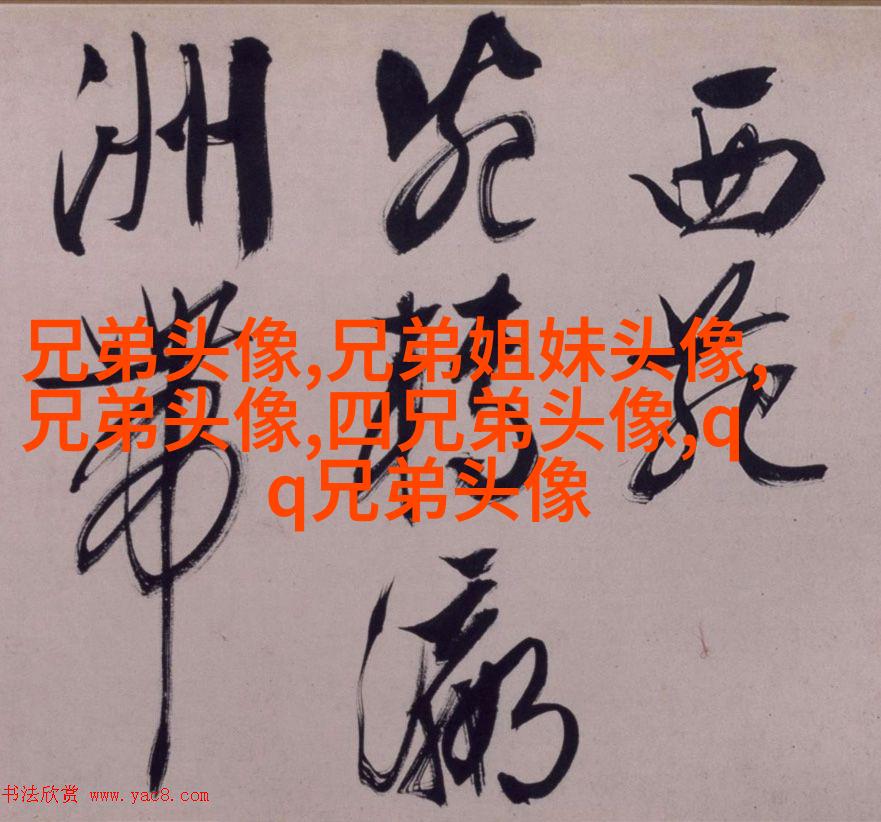 西苑
瀛
洲帶
兄弟头像,兄弟姐妹头像,
兄弟头像,四兄弟头像,q
q兄弟头像
书法欣赏 www.yac8.com